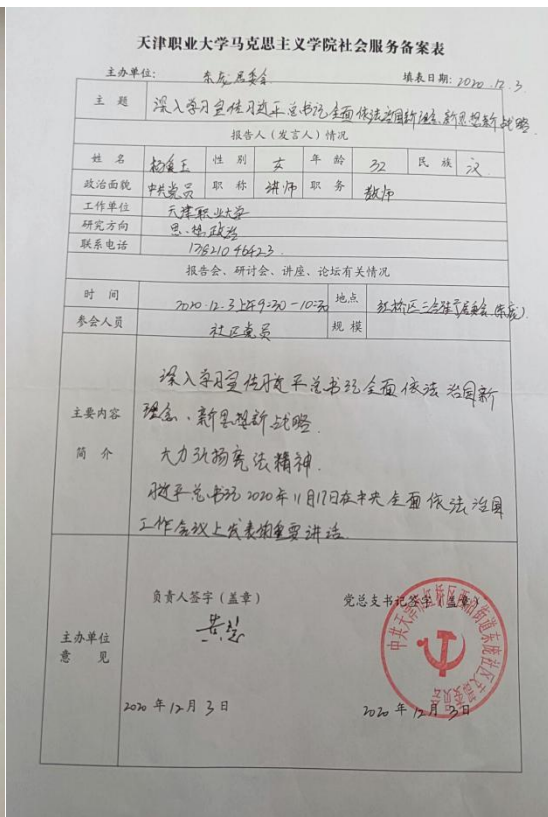 天津职业大学马克思主义学院社会服务备案表
主办单位: 东庞居委会 填表日期: 2020.12.3
主 题 深入学习宣传习近平总书记全面依法治国新理念新思想新战略
报告人（发言人）情况
姓 名 性 别 女 年 龄 32 民 族 汉
政治面貌 中共党员 职 称 讲师 职 务 教师
工作单位 天津职业大学
研究方向 思想政治
联系电话 13821046423
报告会、研讨会、讲座、论坛有关情况
时 间 2020.12.3上午9:30-10:30 地点 红桥区
参会人员 社区党员 规 模
深入学习宣传习近平总书记全面依法治国新
主要内容 理念、新思想新战略.
简 介 大力弘扬宪法精神.
习近平总书记2020年11月17日在中央全面依法治国
工作会议上发表的重要讲话
负责人签字（盖章） 党总支书记签字（盖章）
主办单位
意 见
2020 年 12 月 3 日 2020 年 12 月 3 日